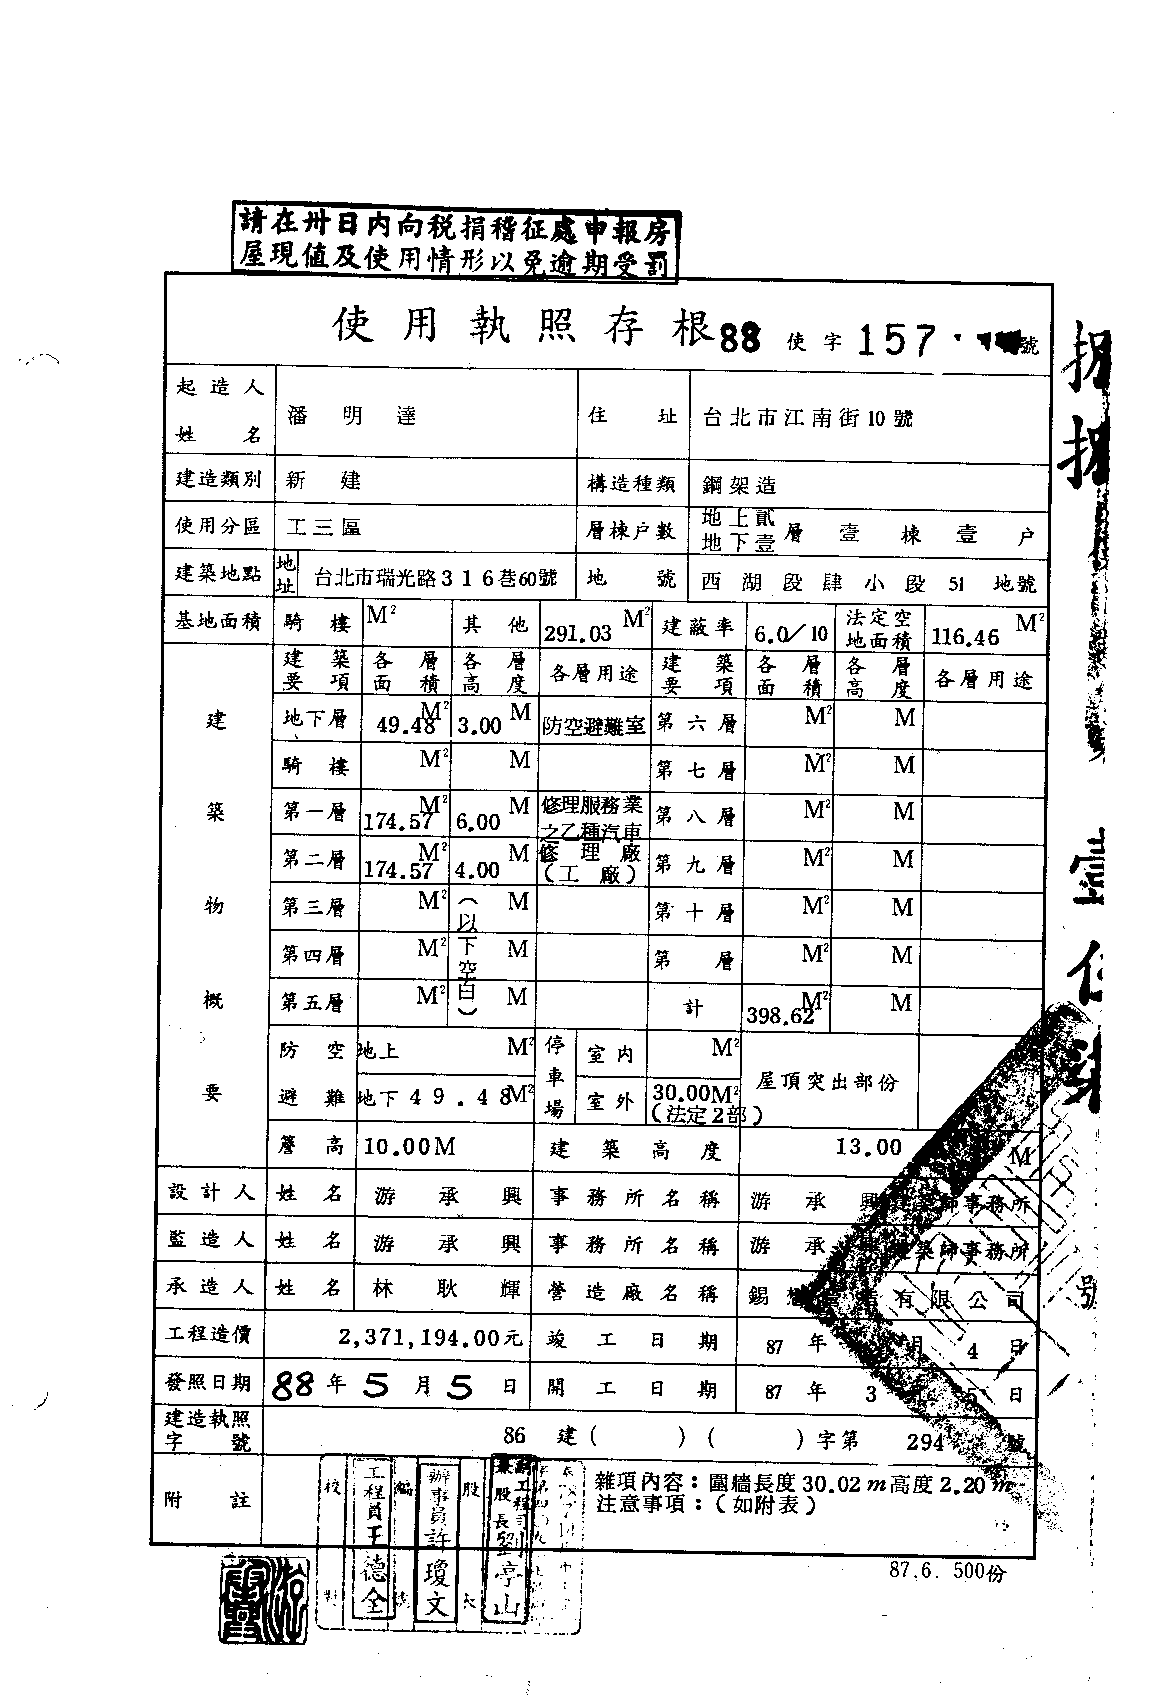 請在卅日內向稅捐稽征處申報房
屋現值及使用情形以免逾期受罰
使用執照存根 88 使字 157 號
起造人姓名 潘明達 住址 台北市江南街10號
建造類別 新建 構造種類 鋼架造
使用分區 工三區 層棟戶數 地上貳地下壹層壹棟壹戶
建築地點 地址 台北市瑞光路316巷60號 地號 西湖段肆小段51地號
基地面積 騎樓 M² 其他 291.03 M² 建蔽率 6.0/10 法定空地面積 116.46 M²
建築物概要
建築要項 各層面積 各層高度 各層用途 建築要項 各層面積 各層高度 各層用途
地下層 49.48 M² 3.00 M 防空避難室 第六層 M² M
騎樓 M² M 第七層 M² M
第一層 174.57 M² 6.00 M 修理服務業之乙種汽車 第八層 M² M
第二層 174.57 M² 4.00 M 修理廠(工廠) 第九層 M² M
第三層 M² M 第十層 M² M
第四層 M² M 第層 M² M
第五層 M² M 計 398.62 M² M
(以下空白)
防空避難 地上 M² 停車場 室內 M² 屋頂突出部份
地下49.48M² 室外 30.00M²
(法定2部)
簷高 10.00M 建築高度 13.00 M
設計人 姓名 游承興 事務所名稱 游承興建築師事務所
監造人 姓名 游承興 事務所名稱 游承興建築師事務所
承造人 姓名 林耿輝 營造廠名稱 錫 有限公司
工程造價 2,371,194.00元 竣工日期 87年 月4日
發照日期 88年5月5日 開工日期 87年3 5日
建造執照字號 86 建( )( )字第 294 號
附註
雜項內容:圍牆長度30.02m高度2.20m
注意事項:(如附表)
校對
工程員王德全
編
辦事員許瓊文
股長
87.6. 500份
捌捌
壹伍柒
號